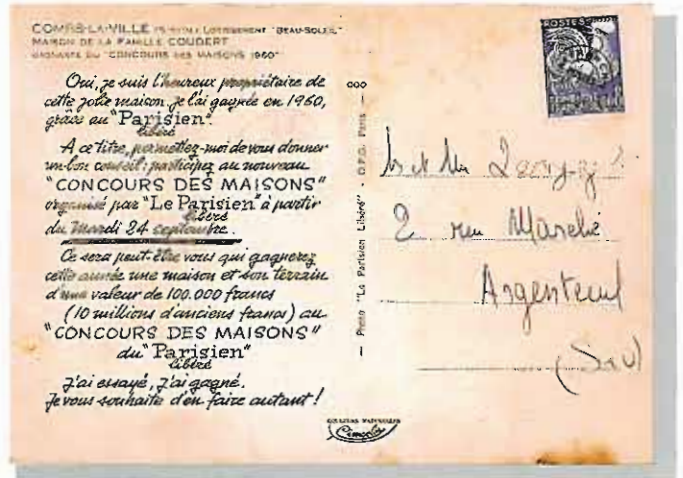 COMBS-LA-VILLE LOTISSEMENT "BEAU-SOLEIL"
MAISON DE LA FAMILLE COUDERT
GAGNANTE DU "CONCOURS DES MAISONS 1960"
Oui, je suis l'heureux propriétaire de
cette jolie maison. Je l'ai gagnée en 1960,
grâce au "Parisien".
libéré
A ce titre, permettez-moi de vous donner
un bon conseil : participez au nouveau
"CONCOURS DES MAISONS"
organisé par "Le Parisien" à partir
libéré
du Mardi 24 septembre.
Ce sera peut-être vous qui gagnerez
cette année une maison et son terrain
d'une valeur de 100.000 francs
(10 millions d'anciens francs) au
"CONCOURS DES MAISONS"
du "Parisien"
libéré
J'ai essayé, j'ai gagné.
Je vous souhaite d'en faire autant !
— Photo "Le Parisien Libéré" - O.P.G. Paris —
POSTES
2 rue Marché
Argenteuil
Cimcolor